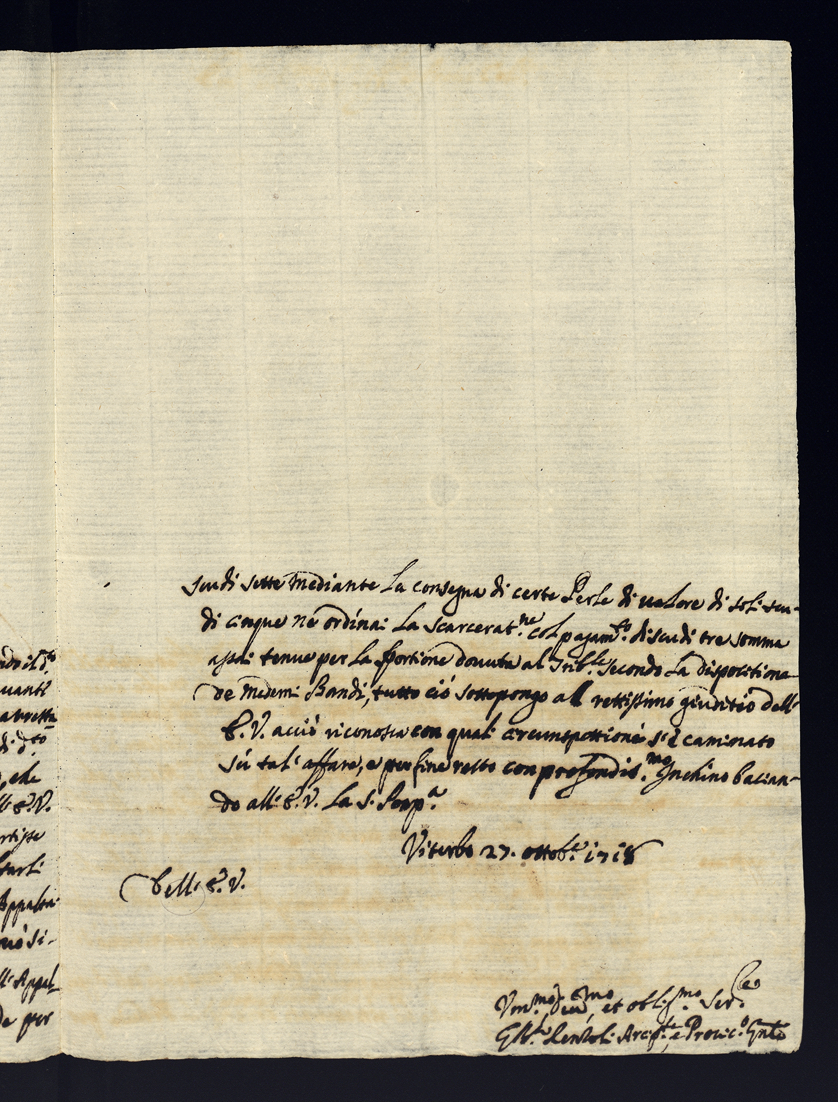 scudi sette mediante la consegna di certe Perle di valore di soli scu-
di cinque ne ordinai la scarcerat.ne col pagam.to di scudi tre somma
assai tenue per la portione douuta al Trib.le secondo la dispositione
de medemi Bandi, tutto ciò sottopongo al rettissimo giuditio dell'
E.V. acciò riconosca con quali circumspettione si è caminato
sù tal'affare, e per fine resto con profondis.mo Inchino bacian-
do all'E.V. la S. Porp.a
Viterbo 27. ottob.e 1718
Dell'E.V.
et oblig.mo Ser.re
ndo il d.to
uanti
di d.to
, che
ll'E.V.
Appalta
ll'Appal-
de per